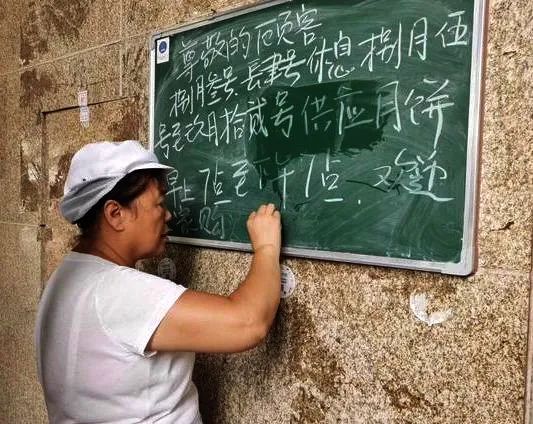 尊敬的顾客
捌月叁号、肆号休息 捌月伍
号至玖月拾贰号供应月饼
早上7点至下午7点.欢迎